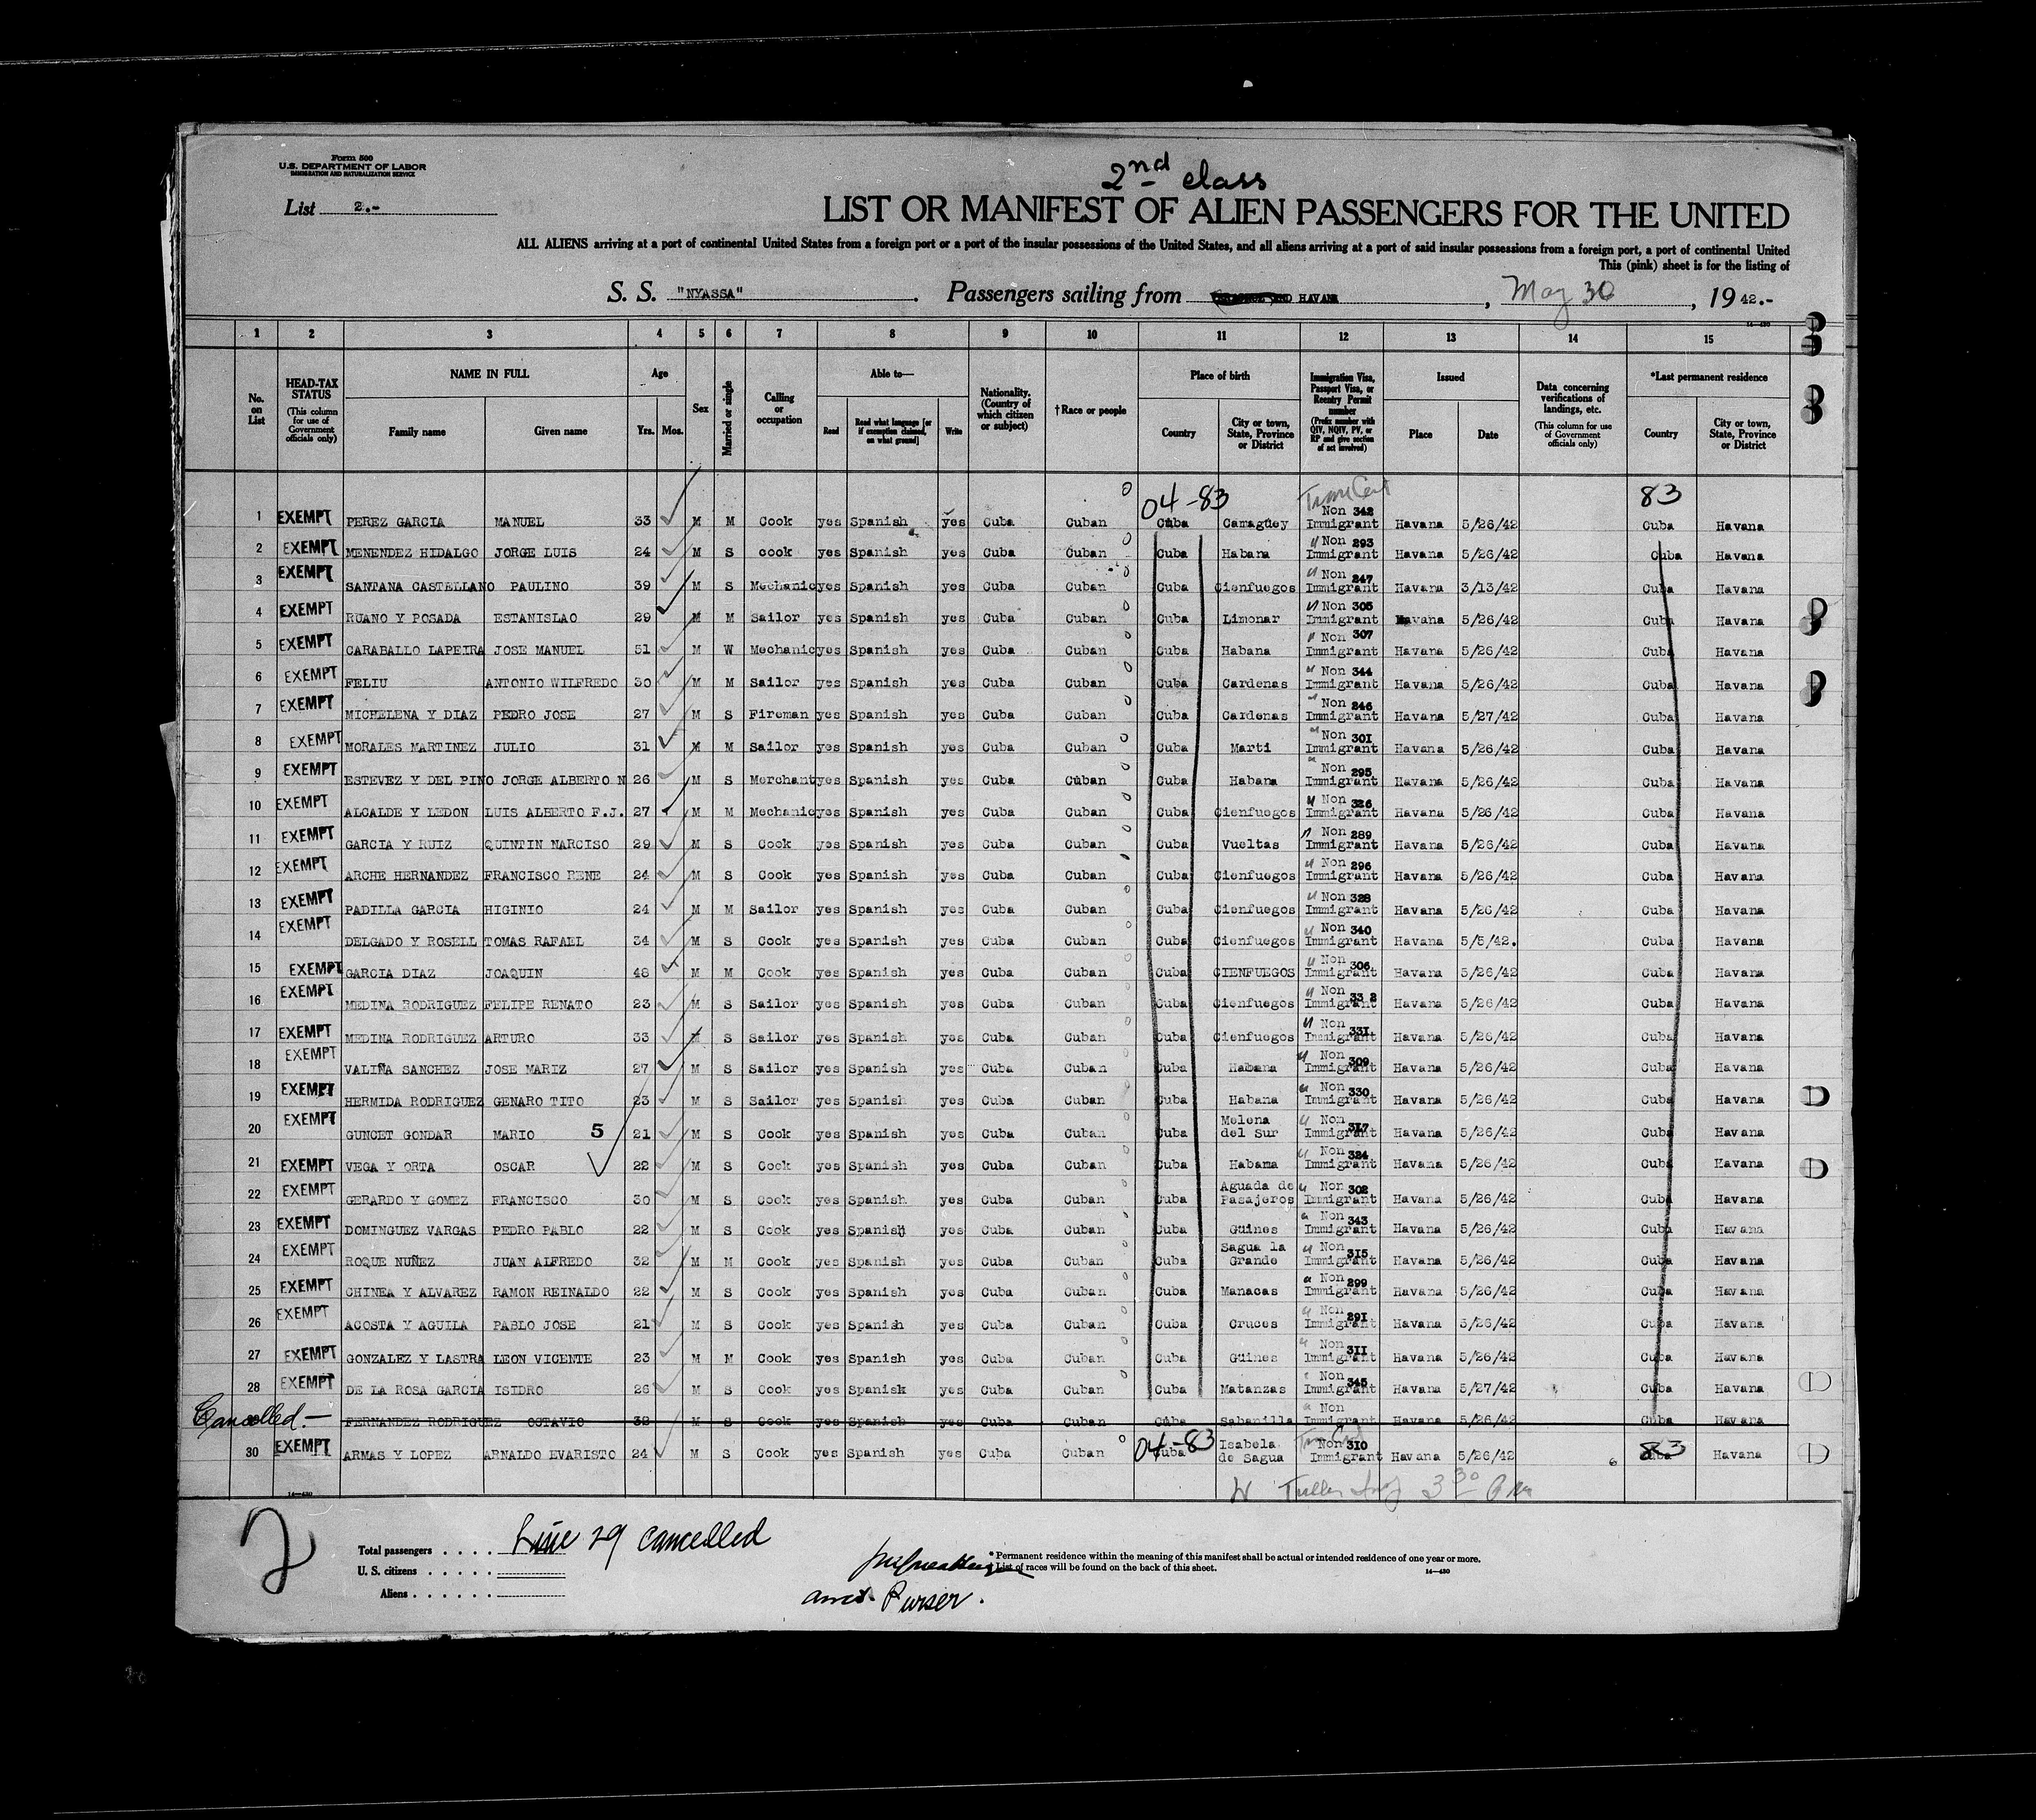 Form 500
U.S. DEPARTMENT OF LABOR
IMMIGRATION AND NATURALIZATION SERVICE
2nd class
List 2.-
LIST OR MANIFEST OF ALIEN PASSENGERS FOR THE UNITED
ALL ALIENS arriving at a port of continental United States from a foreign port or a port of the insular possessions of the United States, and all aliens arriving at a port of said insular possessions from a foreign port, a port of continental United
This (pink) sheet is for the listing of
S. S. "NYASSA" Passengers sailing from HAVANA, May 30, 1942.-
14-430
1 2 3 4 5 6 7 8 9 10 11 12 13 14 15
No. on List
HEAD-TAX STATUS (This column for use of Government officials only)
NAME IN FULL Family name Given name
Age Yrs. Mos.
Sex
Married or single
Calling or occupation
Able to— Read Read what language [or if exemption claimed, on what ground] Write
Nationality. (Country of which citizen or subject)
†Race or people
Place of birth Country City or town, State, Province or District
Immigration Visa, Passport Visa, or Reentry Permit number (Prefix number with QIV, NQIV, PV, or RP and give section of act involved)
Issued Place Date
Data concerning verifications of landings, etc. (This column for use of Government officials only)
*Last permanent residence Country City or town, State, Province or District
04-83 83
1 EXEMPT PEREZ GARCIA MANUEL 33 M M Cook yes Spanish yes Cuba Cuban Cuba Camagüey Non 342 Immigrant Havana 5/26/42 Cuba Havana
2 EXEMPT MENENDEZ HIDALGO JORGE LUIS 24 M S cook yes Spanish yes Cuba Cuban Cuba Habana Non 293 Immigrant Havana 5/26/42 Cuba Havana
3 EXEMPT SANTANA CASTELLANO PAULINO 39 M S Mechanic yes Spanish yes Cuba Cuban Cuba Cienfuegos Non 247 Immigrant Havana 3/13/42 Cuba Havana
4 EXEMPT RUANO Y POSADA ESTANISLAO 29 M M Sailor yes Spanish yes Cuba Cuban Cuba Limonar Non 305 Immigrant Havana 5/26/42 Cuba Havana
5 EXEMPT CARABALLO LAPEIRA JOSE MANUEL 51 M W Mechanic yes Spanish yes Cuba Cuban Cuba Habana Non 307 Immigrant Havana 5/26/42 Cuba Havana
6 EXEMPT FELIU ANTONIO WILFREDO 30 M M Sailor yes Spanish yes Cuba Cuban Cuba Cardenas Non 344 Immigrant Havana 5/26/42 Cuba Havana
7 EXEMPT MICHELENA Y DIAZ PEDRO JOSE 27 M S Fireman yes Spanish yes Cuba Cuban Cuba Cardenas Non 246 Immigrant Havana 5/27/42 Cuba Havana
8 EXEMPT MORALES MARTINEZ JULIO 31 M M Sailor yes Spanish yes Cuba Cuban Cuba Marti Non 301 Immigrant Havana 5/26/42 Cuba Havana
9 EXEMPT ESTEVEZ Y DEL PINO JORGE ALBERTO N 26 M S Merchant yes Spanish yes Cuba Cuban Cuba Habana Non 295 Immigrant Havana 5/26/42 Cuba Havana
10 EXEMPT ALCALDE Y LEDON LUIS ALBERTO F.J. 27 M M Mechanic yes Spanish yes Cuba Cuban Cuba Cienfuegos Non 326 Immigrant Havana 5/26/42 Cuba Havana
11 EXEMPT GARCIA Y RUIZ QUINTIN NARCISO 29 M S Cook yes Spanish yes Cuba Cuban Cuba Vueltas Non 289 Immigrant Havana 5/26/42 Cuba Havana
12 EXEMPT ARCHE HERNANDEZ FRANCISCO RENE 24 M S Cook yes Spanish yes Cuba Cuban Cuba Cienfuegos Non 296 Immigrant Havana 5/26/42 Cuba Havana
13 EXEMPT PADILLA GARCIA HIGINIO 24 M M Sailor yes Spanish yes Cuba Cuban Cuba Cienfuegos Non 328 Immigrant Havana 5/26/42 Cuba Havana
14 EXEMPT DELGADO Y ROSELL TOMAS RAFAEL 34 M S Cook yes Spanish yes Cuba Cuban Cuba Cienfuegos Non 340 Immigrant Havana 5/5/42. Cuba Havana
15 EXEMPT GARCIA DIAZ JOAQUIN 48 M M Cook yes Spanish yes Cuba Cuban Cuba CIENFUEGOS Non 306 Immigrant Havana 5/26/42 Cuba Havana
16 EXEMPT MEDINA RODRIGUEZ FELIPE RENATO 23 M S Sailor yes Spanish yes Cuba Cuban Cuba Cienfuegos Non 33 2 Immigrant Havana 5/26/42 Cuba Havana
17 EXEMPT MEDINA RODRIGUEZ ARTURO 33 M S Sailor yes Spanish yes Cuba Cuban Cuba Cienfuegos Non 331 Immigrant Havana 5/26/42 Cuba Havana
18 EXEMPT VALIÑA SANCHEZ JOSE MARIZ 27 M S Sailor yes Spanish yes Cuba Cuban Cuba Habana Non 309 Immigrant Havana 5/26/42 Cuba Havana
19 EXEMPT HERMIDA RODRIGUEZ GENARO TITO 23 M S Sailor yes Spanish yes Cuba Cuban Cuba Habana Non 330 Immigrant Havana 5/26/42 Cuba Havana
20 EXEMPT GUNCET GONDAR MARIO 5 21 M S Cook yes Spanish yes Cuba Cuban Cuba Melena del Sur Non 317 Immigrant Havana 5/26/42 Cuba Havana
21 EXEMPT VEGA Y ORTA OSCAR 22 M S Cook yes Spanish yes Cuba Cuban Cuba Habana Non 324 Immigrant Havana 5/26/42 Cuba Havana
22 EXEMPT GERARDO Y GOMEZ FRANCISCO 30 M S Cook yes Spanish yes Cuba Cuban Cuba Aguada de Pasajeros Non 302 Immigrant Havana 5/26/42 Cuba Havana
23 EXEMPT DOMINGUEZ VARGAS PEDRO PABLO 22 M S Cook yes Spanish yes Cuba Cuban Cuba Güines Non 343 Immigrant Havana 5/26/42 Cuba Havana
24 EXEMPT ROQUE NUÑEZ JUAN ALFREDO 32 M M Cook yes Spanish yes Cuba Cuban Cuba Sagua la Grande Non 315 Immigrant Havana 5/26/42 Cuba Havana
25 EXEMPT CHINEA Y ALVAREZ RAMON REINALDO 22 M S Cook yes Spanish yes Cuba Cuban Cuba Manacas Non 299 Immigrant Havana 5/26/42 Cuba Havana
26 EXEMPT ACOSTA Y AGUILA PABLO JOSE 21 M S Cook yes Spanish yes Cuba Cuban Cuba Cruces Non 291 Immigrant Havana 5/26/42 Cuba Havana
27 EXEMPT GONZALEZ Y LASTRA LEON VICENTE 23 M M Cook yes Spanish yes Cuba Cuban Cuba Güines Non 311 Immigrant Havana 5/26/42 Cuba Havana
28 EXEMPT DE LA ROSA GARCIA ISIDRO 26 M S Cook yes Spanish yes Cuba Cuban Cuba Matanzas Non 345 Immigrant Havana 5/27/42 Cuba Havana
Cancelled.— FERNANDEZ RODRIGUEZ OCTAVIO 38 M S Cook yes Spanish yes Cuba Cuban Cuba Sabanilla Non Immigrant Havana 5/26/42 Cuba Havana
30 EXEMPT ARMAS Y LOPEZ ARNALDO EVARISTO 24 M S Cook yes Spanish yes Cuba Cuban 04-83 Cuba Isabela de Sagua Non 310 Immigrant Havana 5/26/42 6 83 Cuba Havana
14-430
2
Total passengers . . . . Line 29 cancelled
U. S. citizens . . . . .
Aliens . . . . . .
Purser.
* Permanent residence within the meaning of this manifest shall be actual or intended residence of one year or more.
List of races will be found on the back of this sheet.
14-430